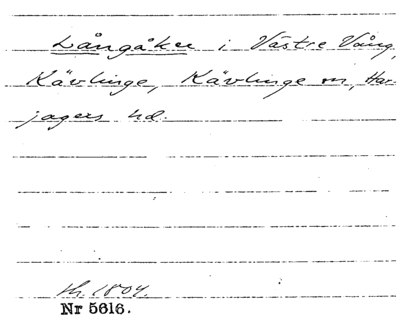 Långåker i Västre Vång,
Kävlinge, Kävlinge sn, Har-
jagers hd.
sh. 1804.
Nr 5616.